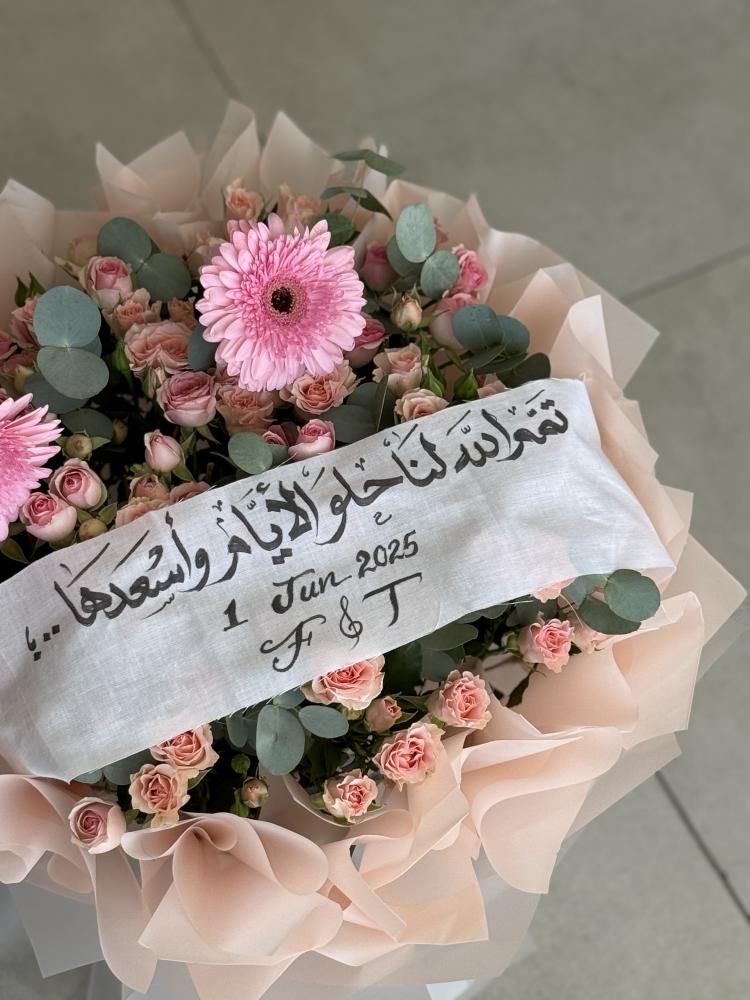 تمّم الله لنا حلو الأيّام وأسعدها..،
1 Jun 2025
F & T